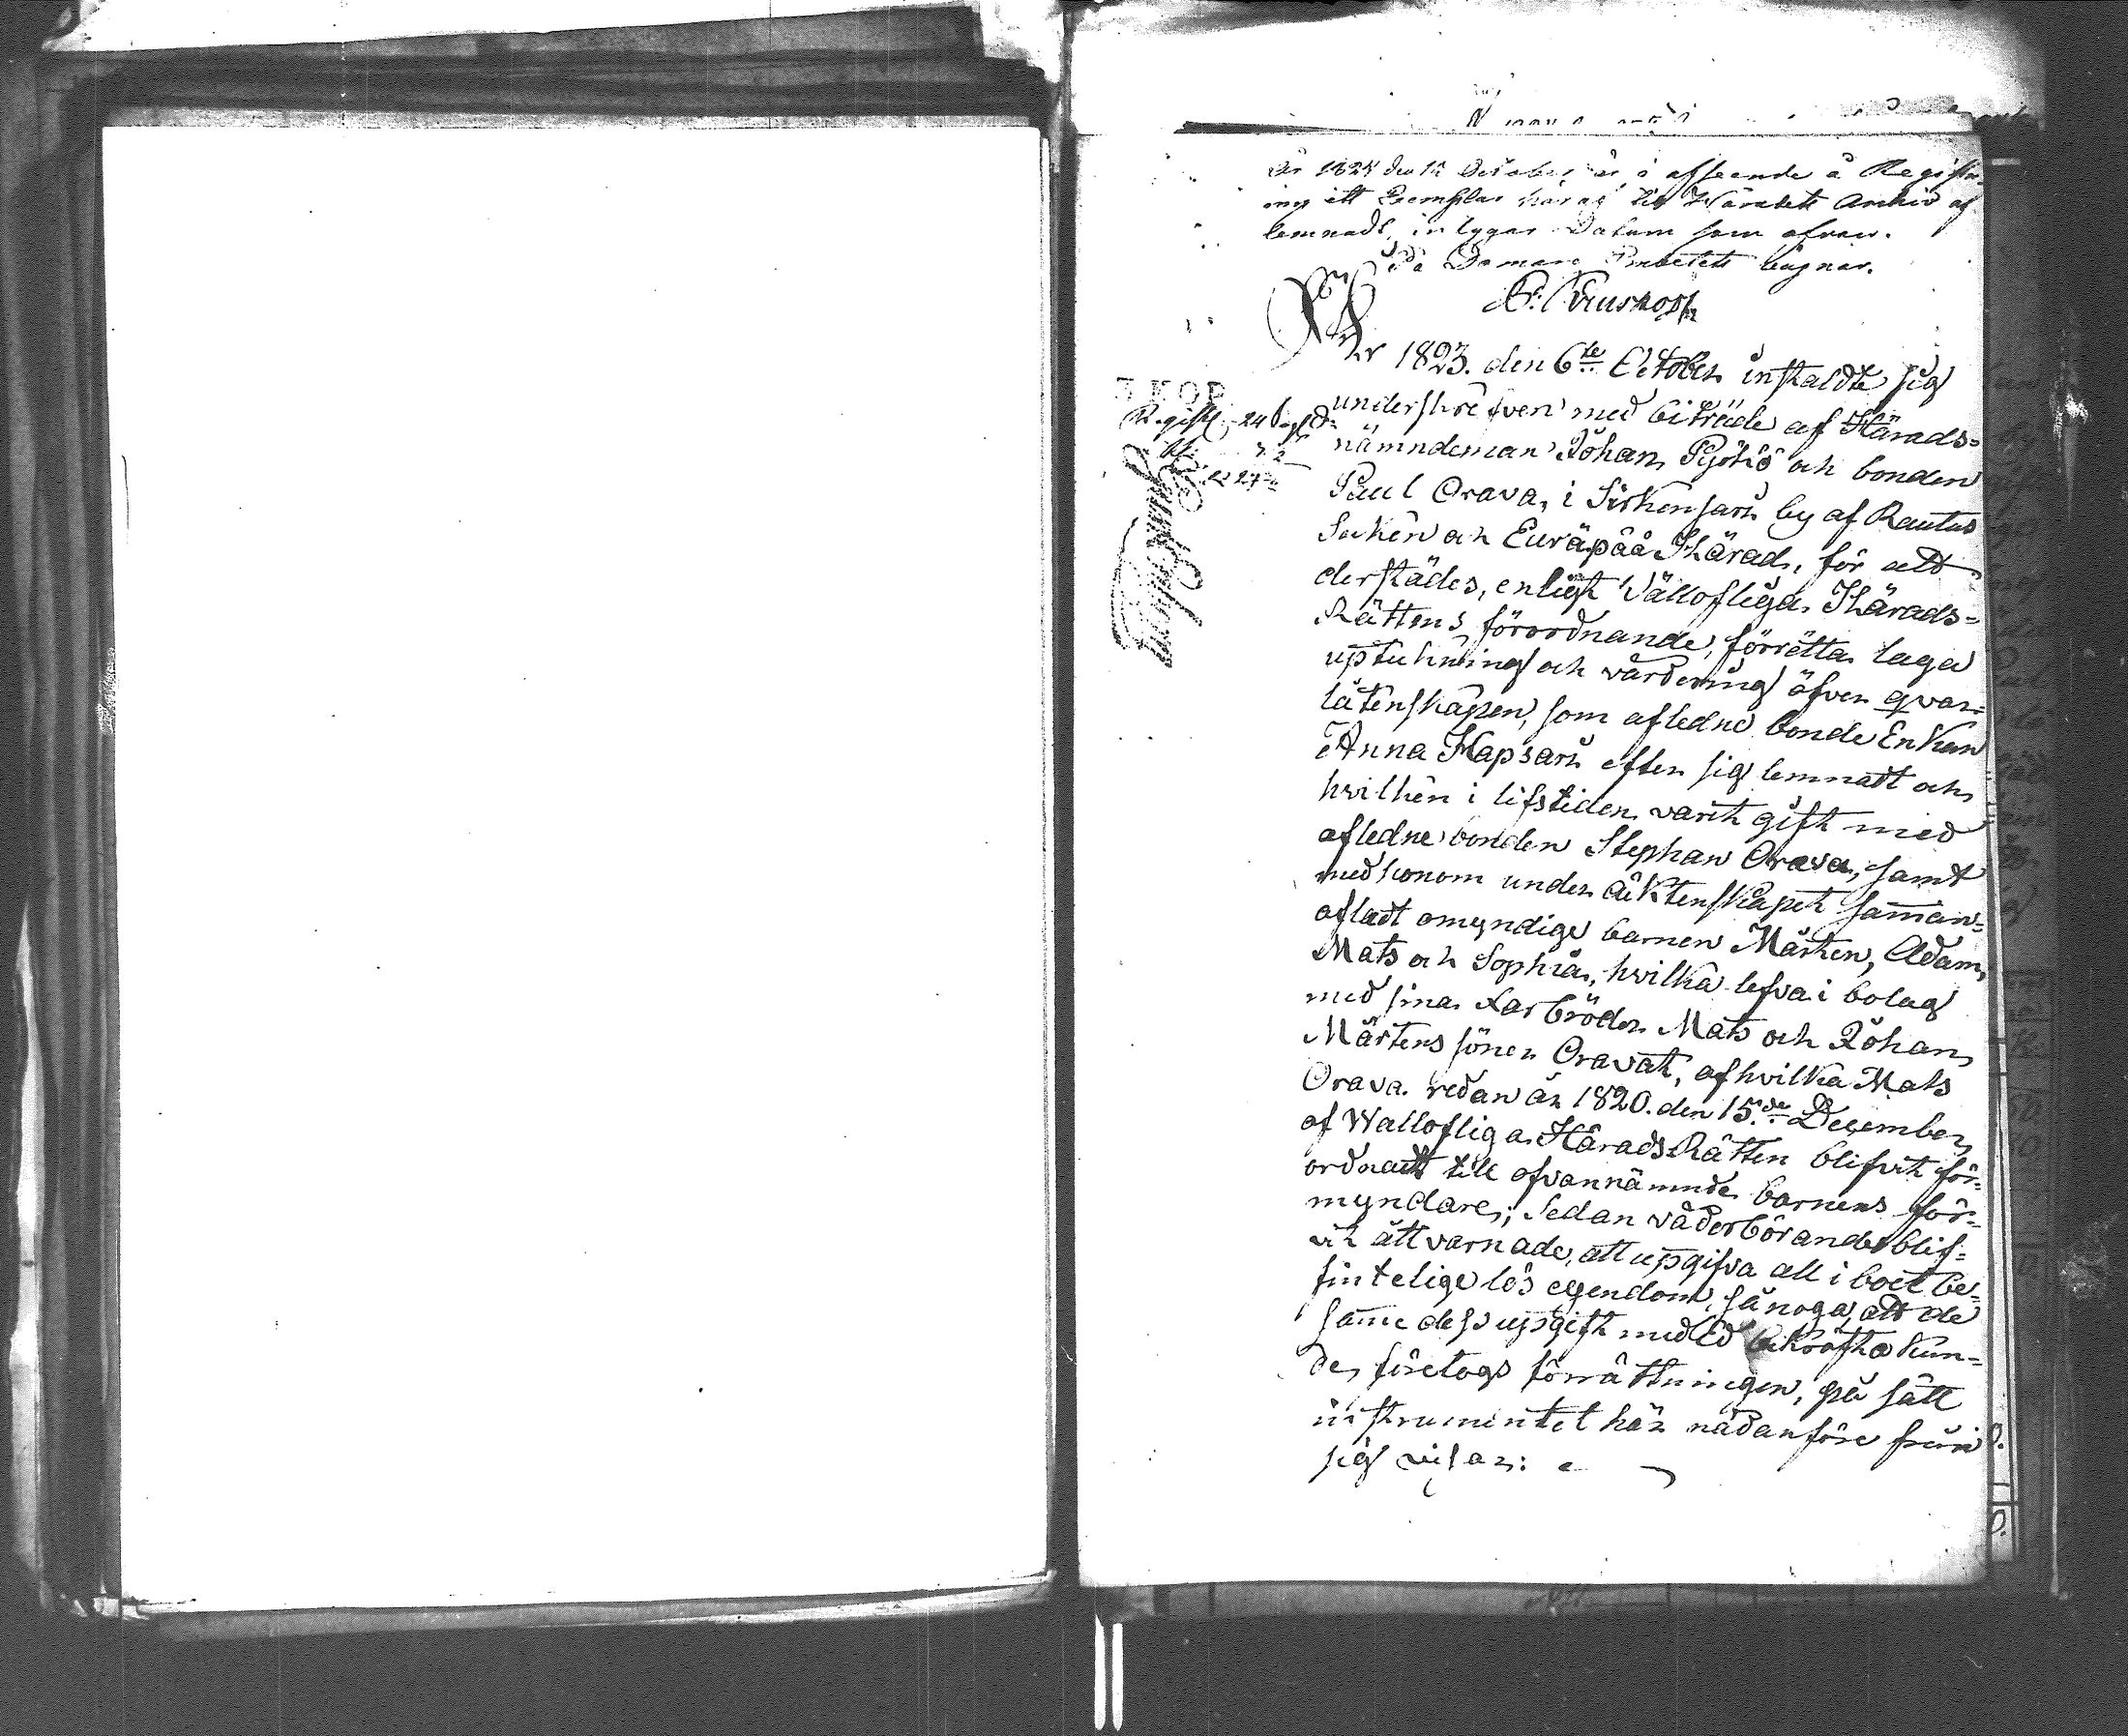 År 1824 den 12 October är i afseende å Registre-
ring ett Exemplar häraf till Häradets Archiv af-
lemnadt, intygar Datum som ofvan.
På Domare Embetets vägnar.
År 1823. den 6te October instaldte sig
underskrefven med biträde af Härads-
nämndeman Johan Pyökiö och bonden
Paul Orava, i Sirkensari by af Rautus
Sokén och Euräpää Härad, för att
derstädes, enligt Vällofliga Härads-
Rättens förordnande, förrätta laga
upteckning och värdering öfver qvar-
låtenskapen, som afledne bonde Enkan
Anna Kapsari efter sig lemnatt och
hvilken i lifstiden varit gift med
afledne bonden Stephan Orava, samt
med honom under äktenskapet samman-
afladt omyndige barnen Mårten, Adam,
Mats och Sophia, hvilka lefva i bolag
med sina Farbröder Mats och Johan
Mårtens söner Oravat, af hvilka Mats
Orava redan år 1820. den 15de December
af Wällofliga HäradsRätten blifvit för-
ordnatt till ofvannämnde barnens för-
myndare; Sedan våderbörande blif-
vit åttvarnade, att upgifva all i boet be-
fintelige lös egendom, så noga, att de
samme dess upgift med Ed bekräfta kun-
de, företogs förrättningen, på sätt
instrumentet här nådanföre
sig visar:
3 KOP.